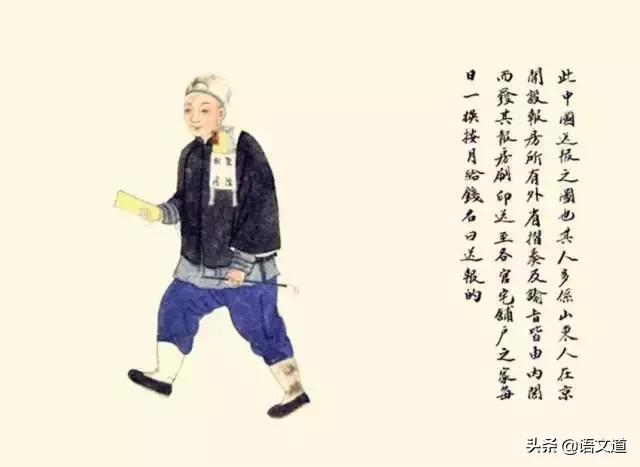 此中國送报之圖也其人多係山東人在京
開設報房所有外省摺奏及諭旨皆由内閣
而發其報房刷印送至各官宅鋪户之家每
日一换按月給錢名曰送報的
報房
头条 @语文道